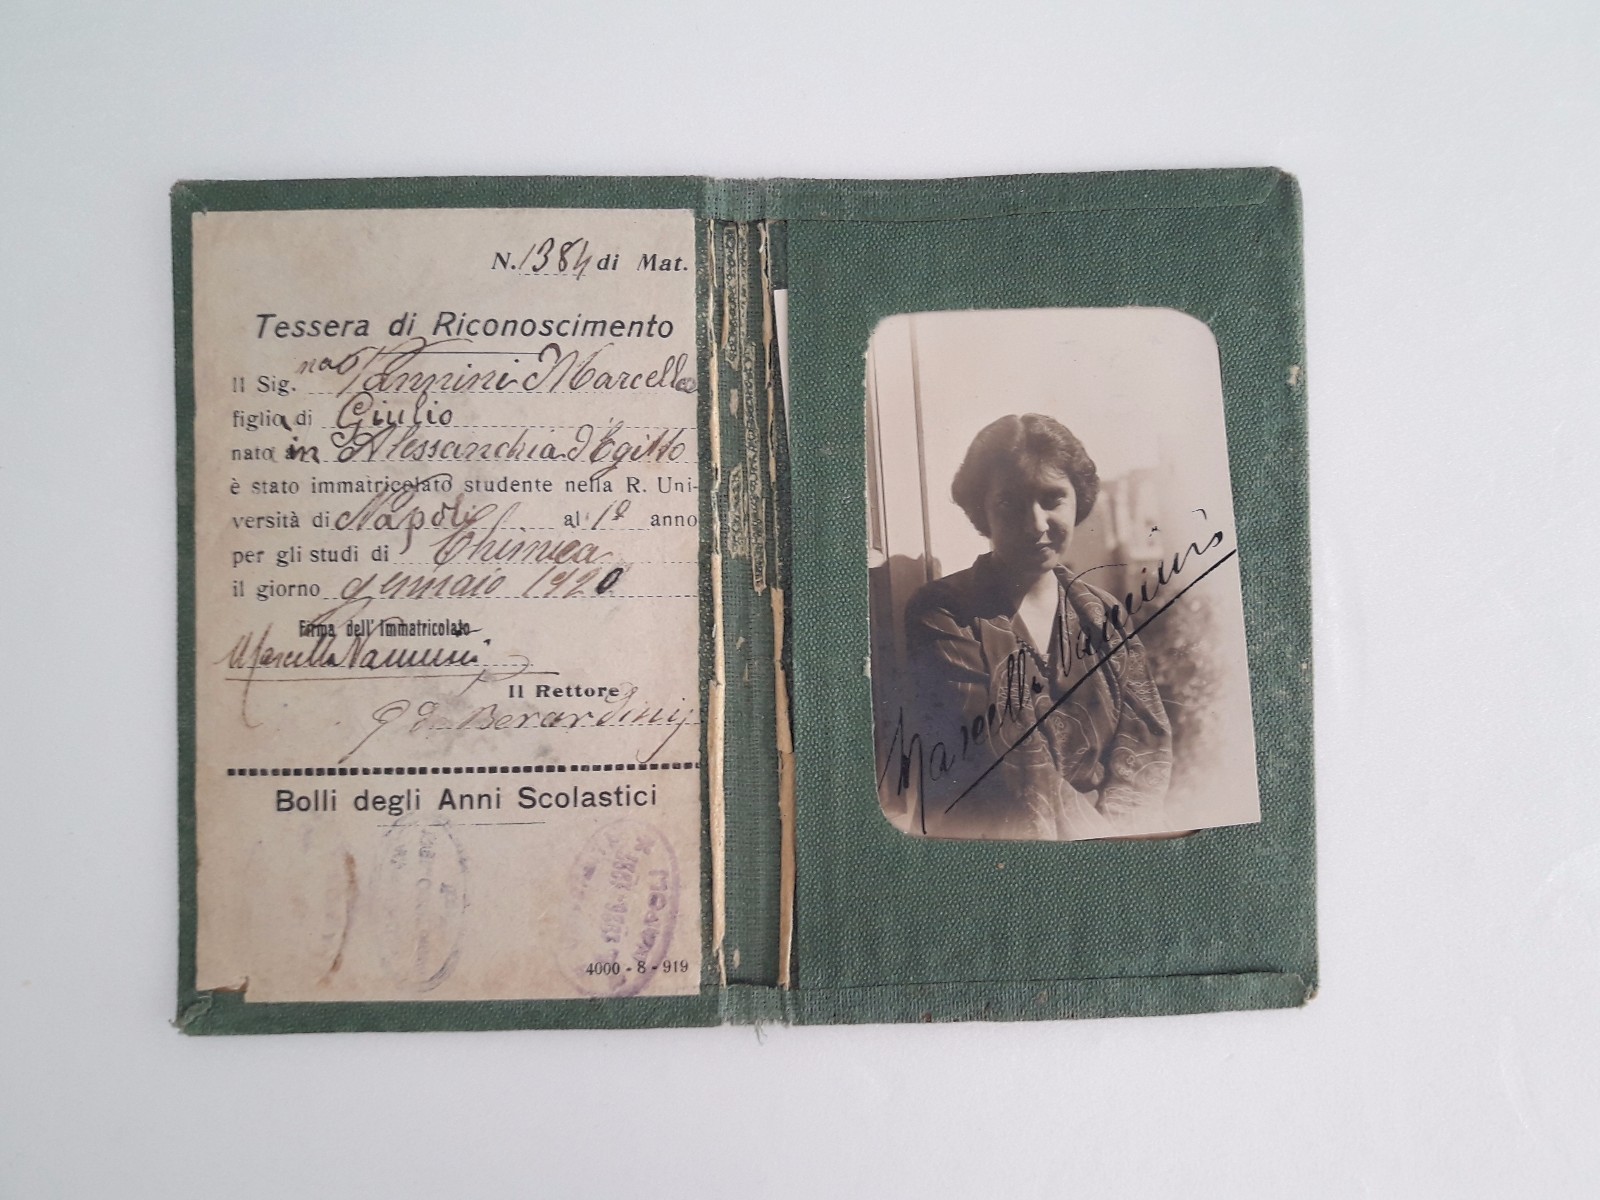 N. 1384 di Mat.
Tessera di Riconoscimento
Il Sig.na Vannini Marcella
figlia di Giulio
nata in Alessandria d'Egitto
è stato immatricolato studente nella R. Uni-
versità di Napoli al 1º anno
per gli studi di Chimica
il giorno gennaio 1920
Firma dell'Immatricolato
Marcella Vannini
Il Rettore
Berardinis
Bolli degli Anni Scolastici
NAPOLI
4000 - 8 - 919
Marcella Vannini